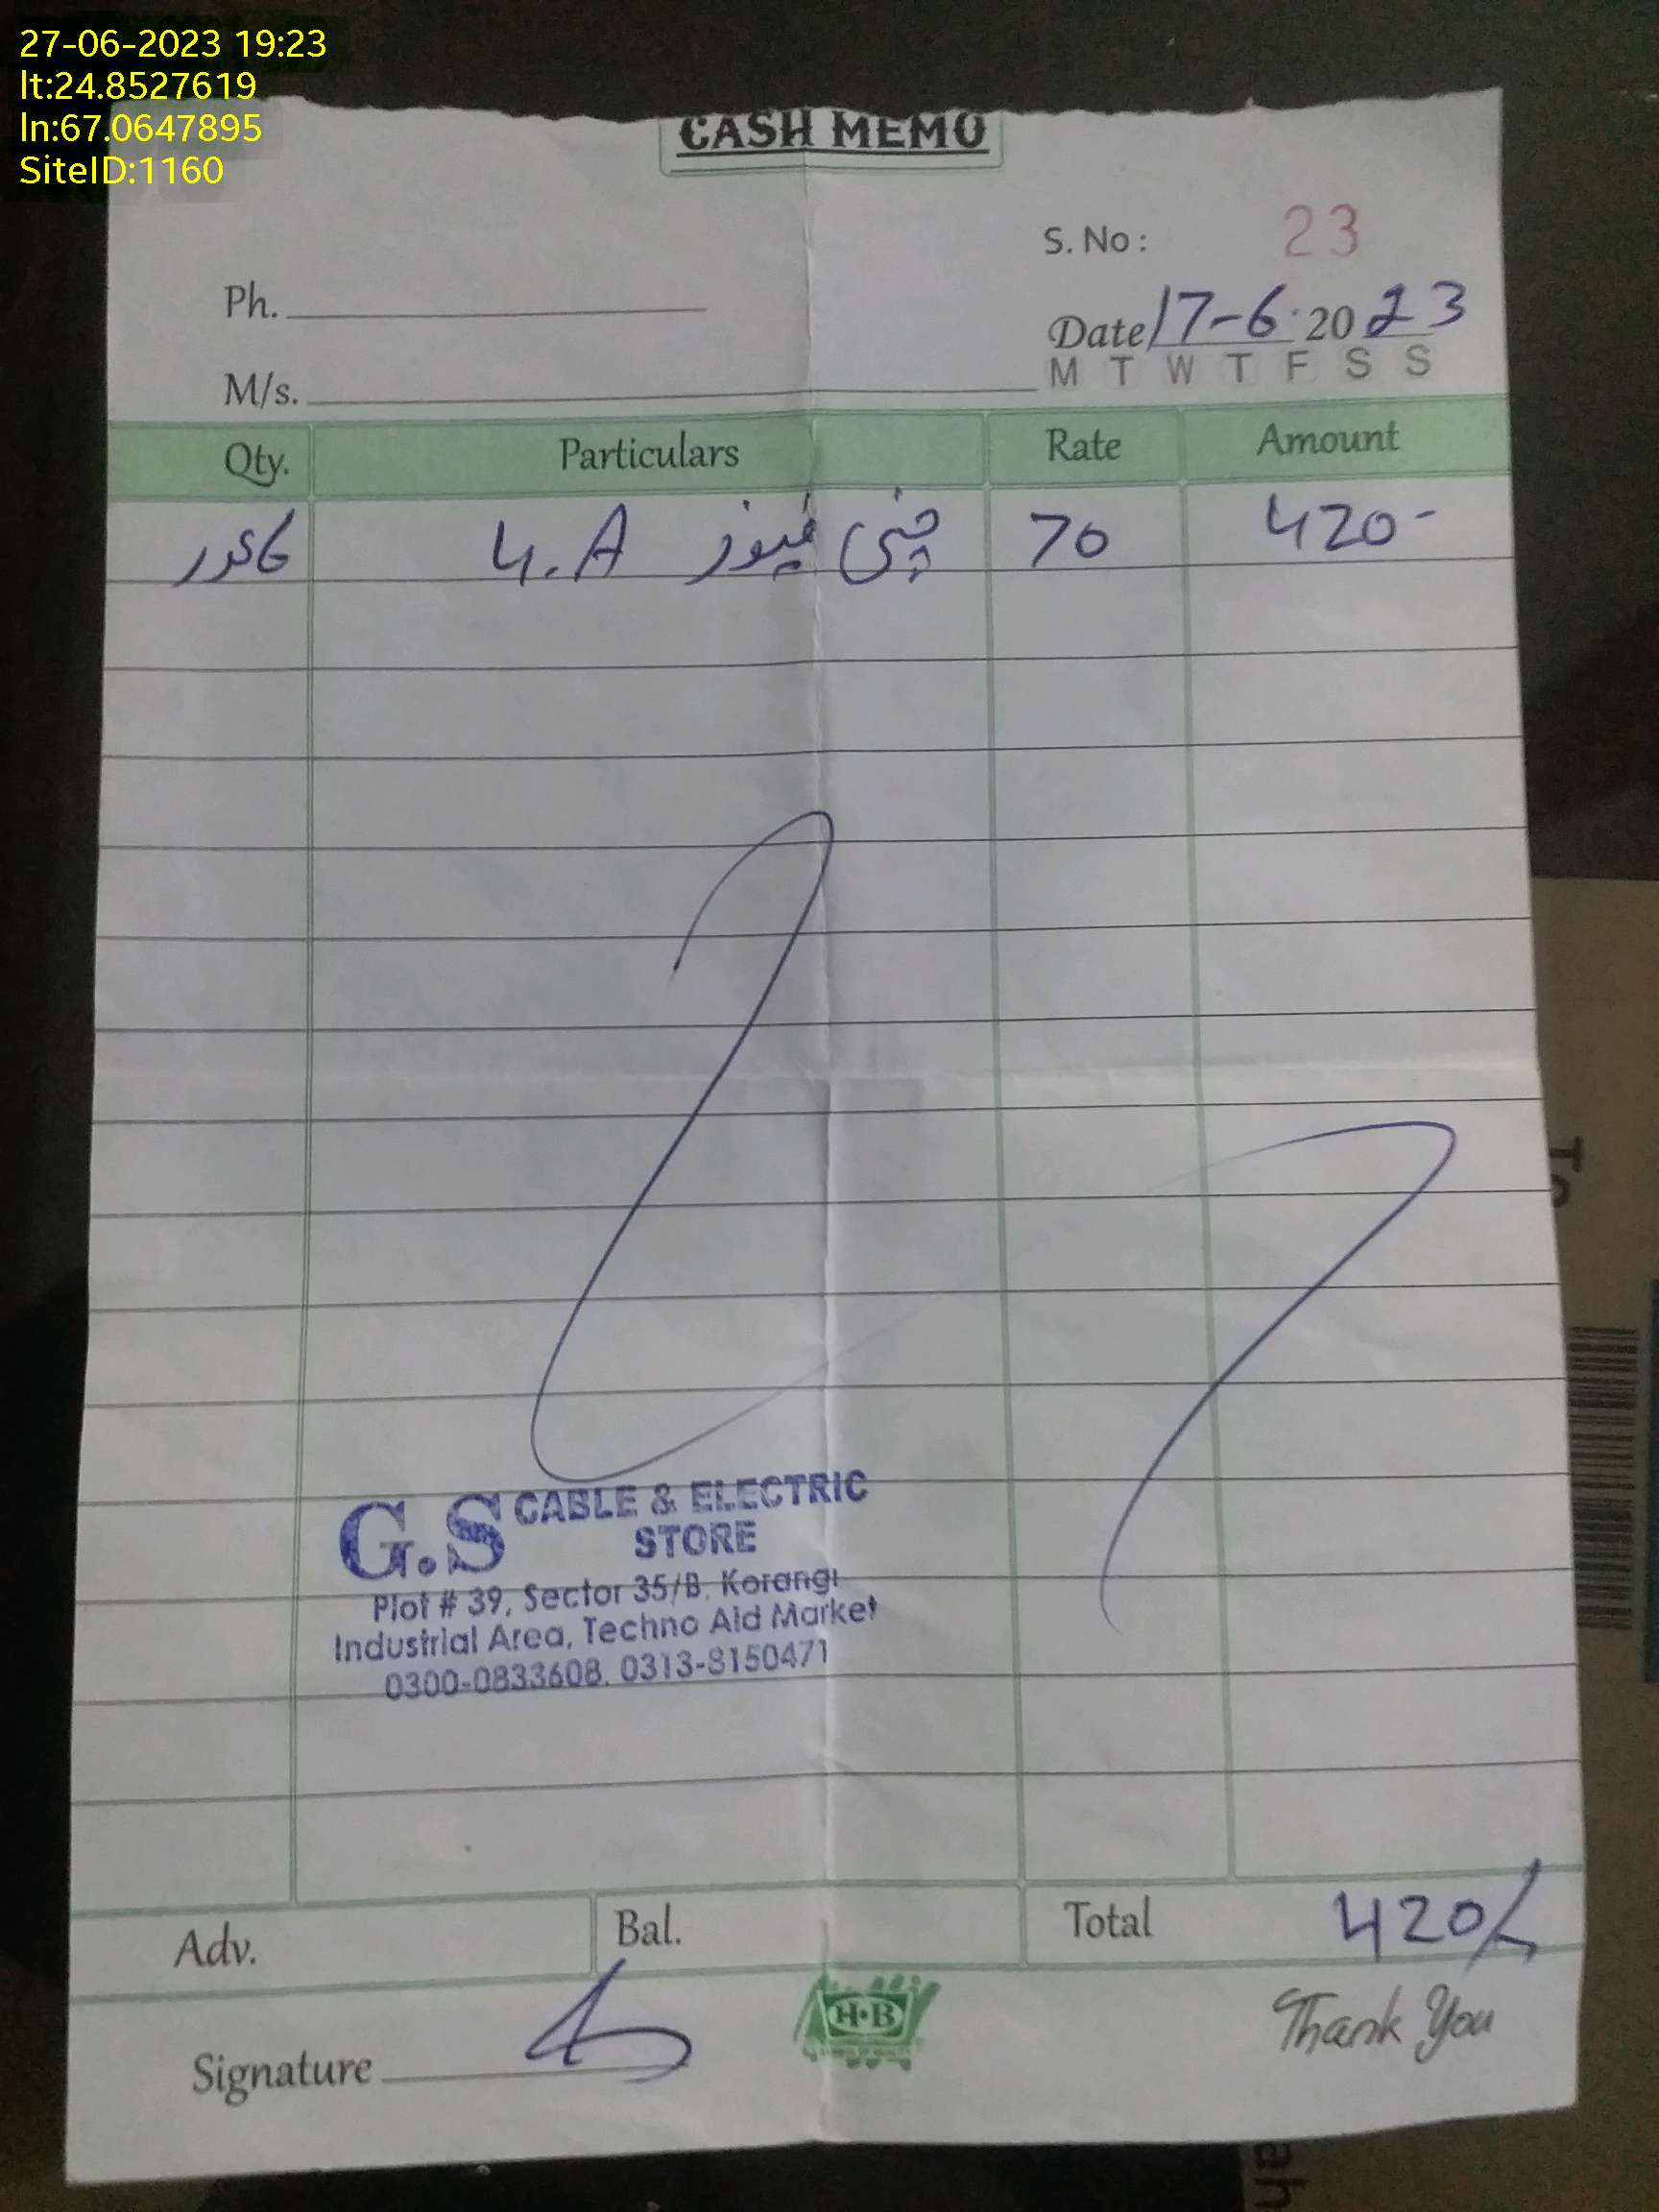 27-06-2023 19:23
lt:24.8527619
ln:67.0647895
SiteID:1160
CASH MEMO
S. No: 23
Ph.
Date 17-6-2023
M/s.
M T W T F S S
Qty. Particulars Rate Amount
عدد چینی فیوز 4.A 70 420-
G.S CABLE & ELECTRIC
STORE
Plot # 39, Sector 35/B, Korangi
Industrial Area, Techno Aid Market
0300-0833608, 0313-8150471
Adv. Bal. Total 420/-
Signature
H·B
Thank You